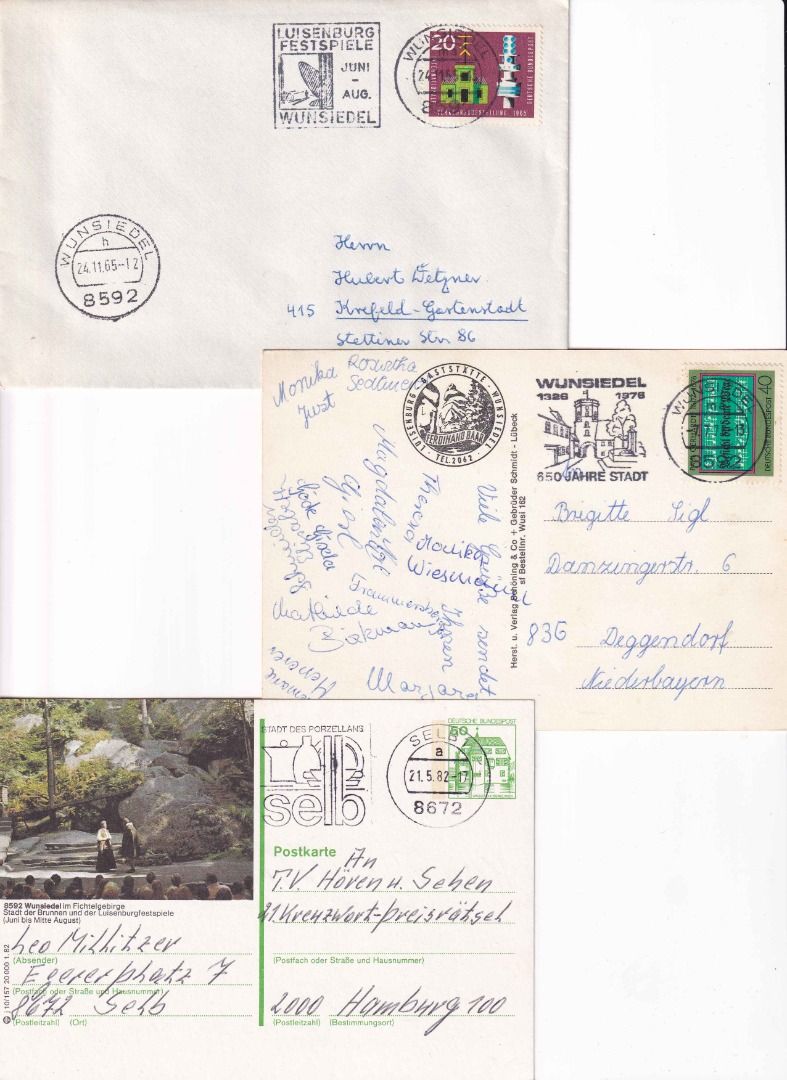 LUISENBURG
FESTSPIELE
JUNI
-
AUG.
WUNSIEDEL
WUNSIEDEL
20
DEUTSCHE BUNDESPOST
WUNSIEDEL
h
24.11.65-12
8592
Herrn
Hubert Wetzner
415 Krefeld-Gartenstadt
Stettiner Str. 86
Monika
Just
LUISENBURG - GASTSTÄTTE - WUNSIEDEL
FERDINAND BAAR
TEL. 2062
WUNSIEDEL
1326 1976
650 JAHRE STADT
40
DEUTSCHE BUNDESPOST
Viele Grüsse sendet
Theresa
Monika
Wiesmann
Mathilde
Herst. u. Verlag Schöning & Co + Gebrüder Schmidt - Lübeck
sf Bestellnr. Wusi 162
Brigitte Sigl
Danzingerstr. 6
836 Deggendorf
Niederbayern
STADT DES PORZELLANS
selb
SELB
a
21.5.82-17
8672
DEUTSCHE BUNDESPOST
50
Postkarte
An
T.V. Hören u. Sehen
21 Kreuzwort-Preisrätsel
(Postfach oder Straße und Hausnummer)
2000 Hamburg 100
(Postleitzahl) (Bestimmungsort)
8592 Wunsiedel im Fichtelgebirge
Stadt der Brunnen und der Luisenburgfestspiele
(Juni bis Mitte August)
Leo Millitzer
(Absender)
Egererplatz 7
(Postfach oder Straße und Hausnummer)
8672 Selb
(Postleitzahl) (Ort)
j 10/157 20 000 1.82